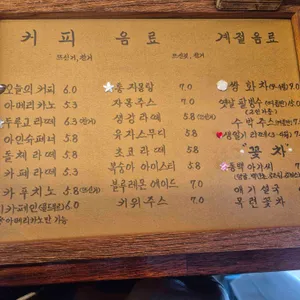 커피
뜨신거, 찬거
오늘의 커피 6.0
아메리카노 5.3
라떼 6.3
아인슈페너 5.8
돌체 라떼 5.8
카페 라떼 5.3
카푸치노 5.8
6.0
아메리카노만 가능
음료
뜨신거, 찬거
자몽 7.0
자몽주스 7.0
생강라떼 5.8
유자스무디 5.8
초코 라떼 5.8
복숭아 아이스티 5.8
블루레몬 에이드 7.0
키위주스 7.0
계절음료
쌍화차
옛날 팥빙수
수박주스
딸기 라떼
꽃차
동백아가씨 7.0
애기 설국
목련꽃차